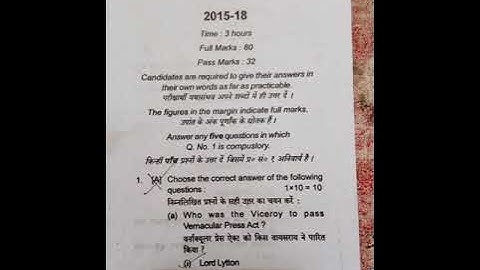 2015-18
Time : 3 hours
Full Marks : 80
Pass Marks : 32
Candidates are required to give their answers in
their own words as far as practicable.
परीक्षार्थी यथासंभव अपने शब्दों में ही उत्तर दें ।
The figures in the margin indicate full marks.
उपांत के अंक पूर्णांक के द्योतक हैं ।
Answer any five questions in which
Q. No. 1 is compuslory.
किन्हीं पाँच प्रश्नों के उत्तर दें जिसमें प्र० सं० १ अनिवार्य है ।
1. (A) Choose the correct answer of the following
questions : 1×10 = 10
निम्नलिखित प्रश्नों के सही उत्तर का चयन करें :
(a) Who was the Viceroy to pass
Vernacular Press Act ?
वर्नाक्यूलर प्रेस ऐक्ट को किस वायसराय ने पारित
किया ?
(i) Lord Lytton